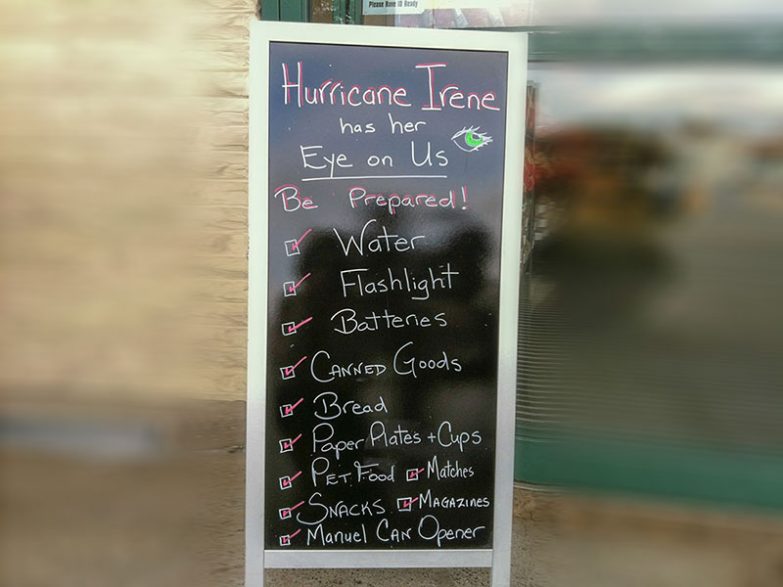 Please Have ID Ready
Hurricane Irene
has her
Eye on Us
Be Prepared!
Water
Flashlight
Batteries
Canned Goods
Bread
Paper Plates + Cups
Pet Food Matches
Snacks Magazines
Manuel Can Opener